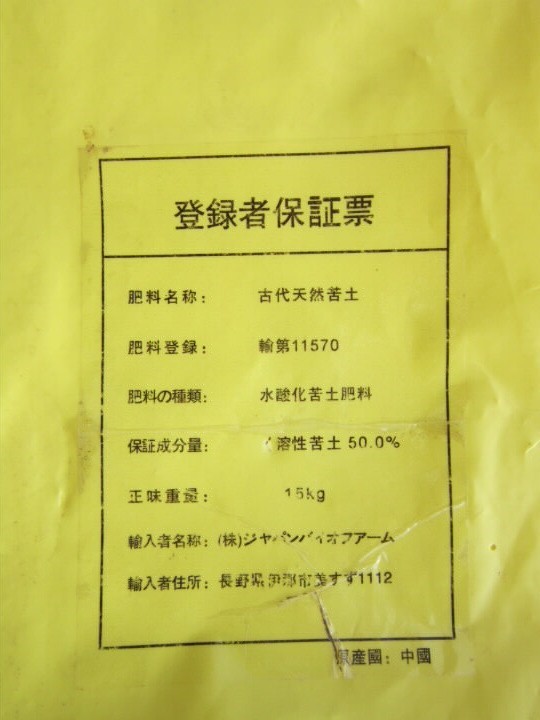 登録者保証票
肥料名称: 古代天然苦土
肥料登録: 輸第11570
肥料の種類: 水酸化苦土肥料
保証成分量: 溶性苦土 50.0%
正味重量: 15kg
輸入者名称: (株)ジャパンバイオファーム
輸入者住所: 長野県伊那市美すず1112
原産國: 中國